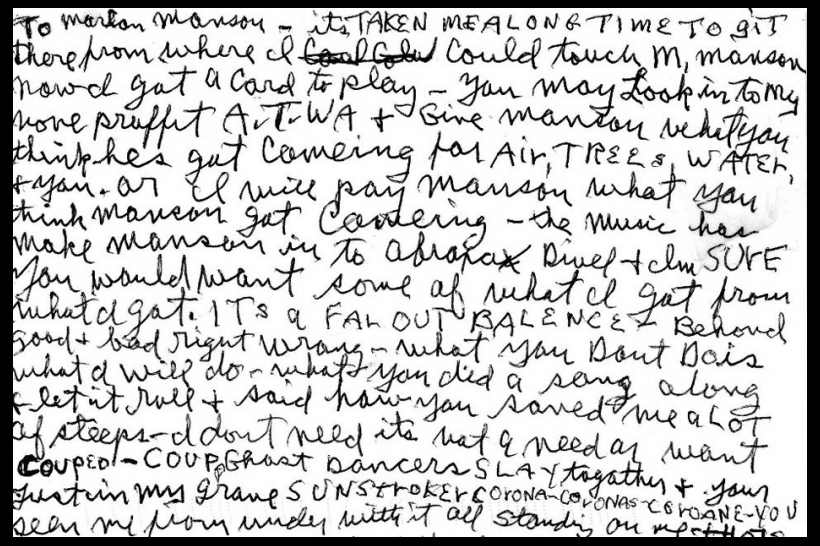 To marlon manson – its TAKEN ME A LONG TIME TO GiT
there from where I could touch M, manson
now I gat a Card to play – you may Look in to My
none proffit A.T.WA + Give manson what you
think hes gat Comeing for Air, TREEs, WATEr,
+ you. or I will pay Manson what you
think manson gat Comeing – the music has
make manson in to abrafax Divel + Im SUrE
you would want some of what I gat from
what I gat. ITs a FAr OUT BALENCE – Behond
good + bad right wrong – what you Dont Dois
what I will do – what you did a song along
+ let it roll + said how you saved me a LOT
of steeps – I dont need its not a need or want
COUPEd – COUP Ghost Dancers SLAY togather + your
just in my grave SUNSTroKEr COrONA-COrONAS-COrOANE-YOU
seen me from under with it all standing on